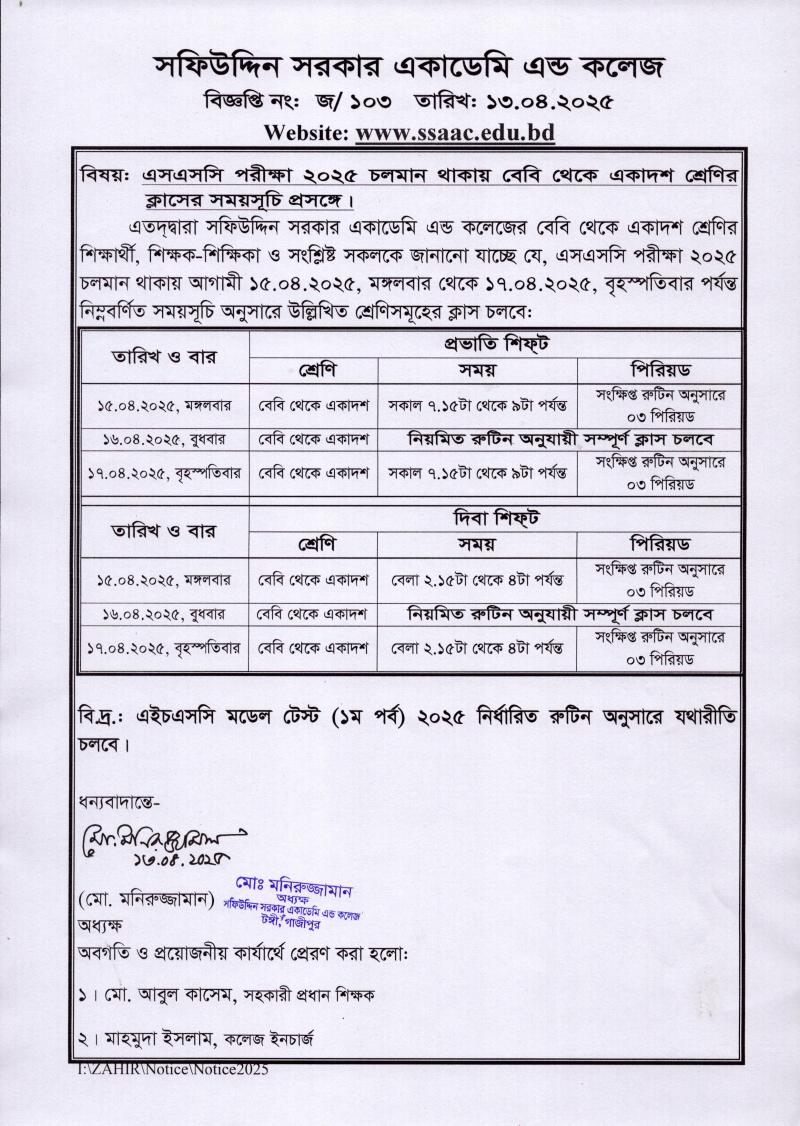 সফিউদ্দিন সরকার একাডেমি এন্ড কলেজ
বিজ্ঞপ্তি নং: জ/ ১০৩ তারিখ: ১৩.০৪.২০২৫
Website: www.ssaac.edu.bd
বিষয়: এসএসসি পরীক্ষা ২০২৫ চলমান থাকায় বেবি থেকে একাদশ শ্রেণির
ক্লাসের সময়সূচি প্রসঙ্গে।
এতদ্দ্বারা সফিউদ্দিন সরকার একাডেমি এন্ড কলেজের বেবি থেকে একাদশ শ্রেণির
শিক্ষার্থী, শিক্ষক-শিক্ষিকা ও সংশ্লিষ্ট সকলকে জানানো যাচ্ছে যে, এসএসসি পরীক্ষা ২০২৫
চলমান থাকায় আগামী ১৫.০৪.২০২৫, মঙ্গলবার থেকে ১৭.০৪.২০২৫, বৃহস্পতিবার পর্যন্ত
নিম্নবর্ণিত সময়সূচি অনুসারে উল্লিখিত শ্রেণিসমূহের ক্লাস চলবে:
তারিখ ও বার প্রভাতি শিফ্ট
শ্রেণি সময় পিরিয়ড
১৫.০৪.২০২৫, মঙ্গলবার বেবি থেকে একাদশ সকাল ৭.১৫টা থেকে ৯টা পর্যন্ত সংক্ষিপ্ত রুটিন অনুসারে
০৩ পিরিয়ড
১৬.০৪.২০২৫, বুধবার বেবি থেকে একাদশ নিয়মিত রুটিন অনুযায়ী সম্পূর্ণ ক্লাস চলবে
১৭.০৪.২০২৫, বৃহস্পতিবার বেবি থেকে একাদশ সকাল ৭.১৫টা থেকে ৯টা পর্যন্ত সংক্ষিপ্ত রুটিন অনুসারে
০৩ পিরিয়ড
তারিখ ও বার দিবা শিফ্ট
শ্রেণি সময় পিরিয়ড
১৫.০৪.২০২৫, মঙ্গলবার বেবি থেকে একাদশ বেলা ২.১৫টা থেকে ৪টা পর্যন্ত সংক্ষিপ্ত রুটিন অনুসারে
০৩ পিরিয়ড
১৬.০৪.২০২৫, বুধবার বেবি থেকে একাদশ নিয়মিত রুটিন অনুযায়ী সম্পূর্ণ ক্লাস চলবে
১৭.০৪.২০২৫, বৃহস্পতিবার বেবি থেকে একাদশ বেলা ২.১৫টা থেকে ৪টা পর্যন্ত সংক্ষিপ্ত রুটিন অনুসারে
০৩ পিরিয়ড
বি.দ্র.: এইচএসসি মডেল টেস্ট (১ম পর্ব) ২০২৫ নির্ধারিত রুটিন অনুসারে যথারীতি
চলবে।
ধন্যবাদান্তে-
মো. মনিরুজ্জামান
১৩.০৪.২০২৫
(মো. মনিরুজ্জামান)
অধ্যক্ষ
মোঃ মনিরুজ্জামান
অধ্যক্ষ
সফিউদ্দিন সরকার একাডেমি এন্ড কলেজ
টঙ্গী, গাজীপুর
অবগতি ও প্রয়োজনীয় কার্যার্থে প্রেরণ করা হলো:
১। মো. আবুল কাসেম, সহকারী প্রধান শিক্ষক
২। মাহমুদা ইসলাম, কলেজ ইনচার্জ
I:\ZAHIR\Notice\Notice2025